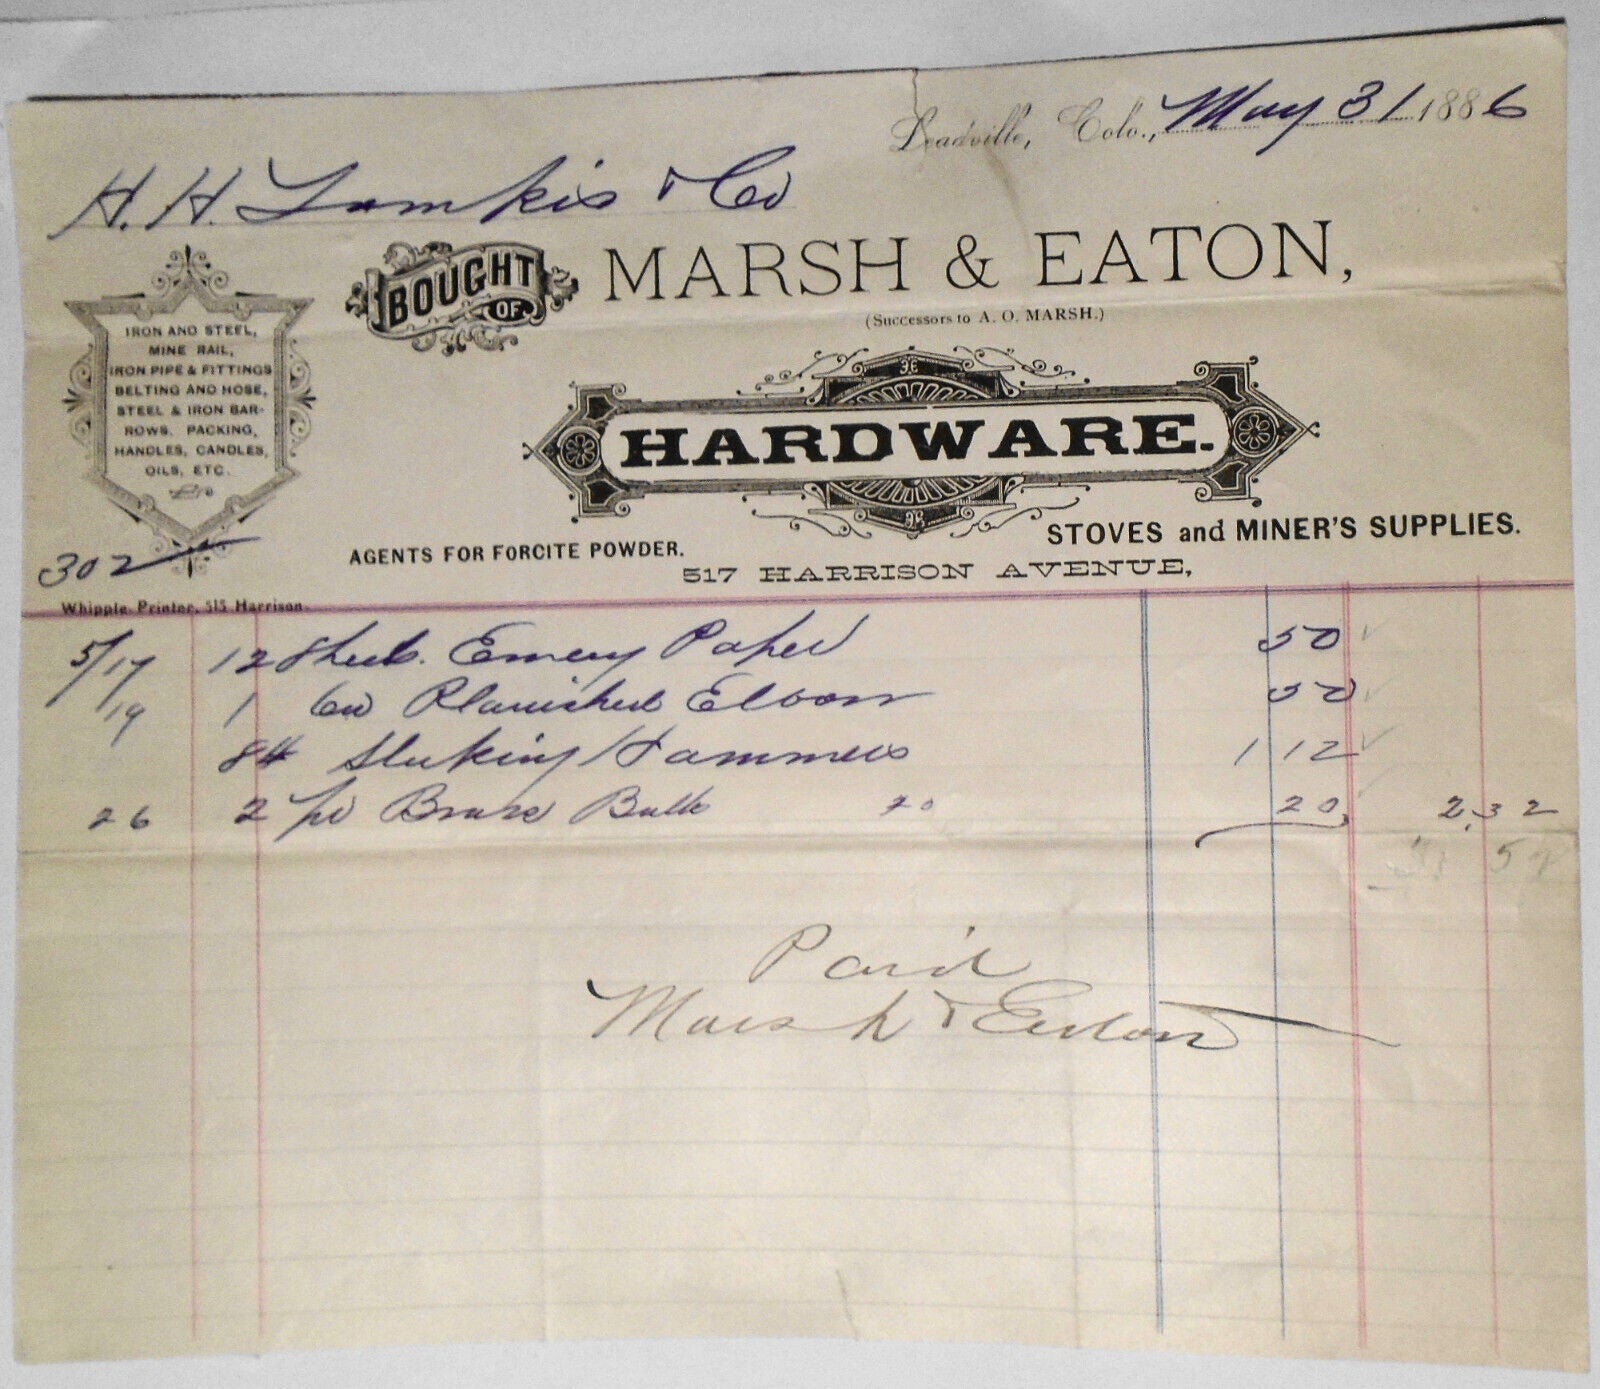 Leadville, Colo., May 31 1886
H. H. Tomkis & Co
BOUGHT OF
MARSH & EATON,
(Successors to A. O. MARSH.)
IRON AND STEEL,
MINE RAIL,
IRON PIPE & FITTINGS
BELTING AND HOSE,
STEEL & IRON BAR-
ROWS. PACKING,
HANDLES, CANDLES,
OILS, ETC.
HARDWARE.
STOVES and MINER'S SUPPLIES.
AGENTS FOR FORCITE POWDER.
517 HARRISON AVENUE,
302
Whipple Printer, 515 Harrison.
5/17 12 Sheets Emery Paper 50
19 1 6in Planished Elbow 50
Hammers 1 12
26 2 pr Brass Butts 20 20 2.32
Paid
Marsh & Eaton